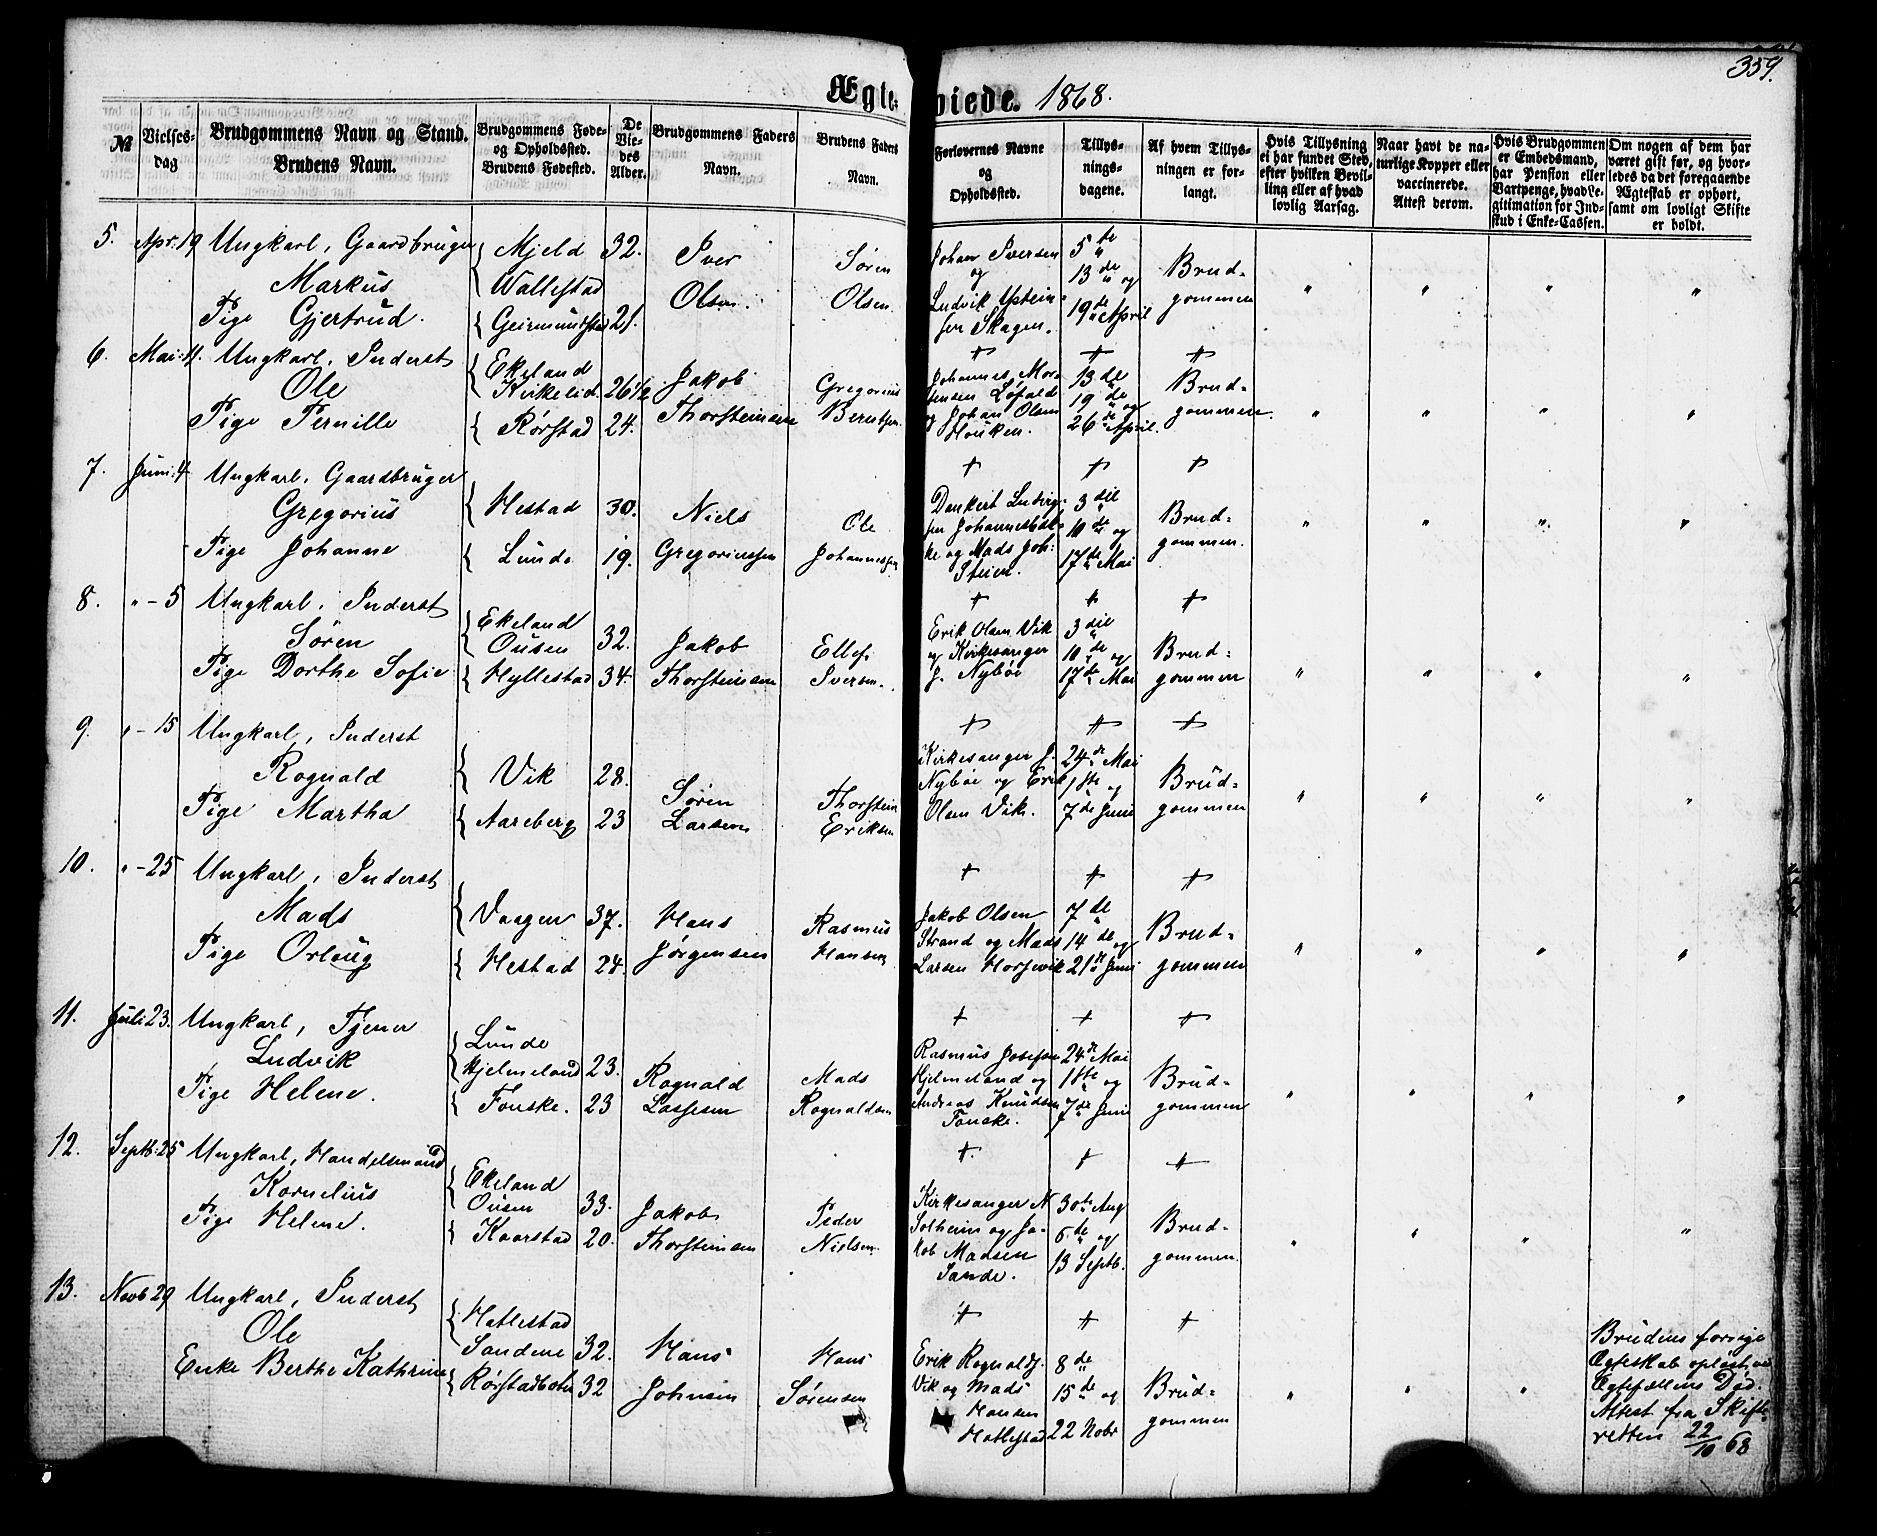 359.
Ægteviede. 1868.
№
Vielses-
dag
Brudgommens Navn og Stand.
Brudens Navn.
Brudgommens Føde-
og Opholdssted.
Brudens Fødested.
De
Vie-
des
Alder.
Brudgommens Faders
Navn.
Brudens Faders
Navn.
Forlovernes Navne
og
Opholdssted.
Tillys-
nings-
dagene.
Af hvem Tillys-
ningen er for-
langt.
Hvis Tillysning
ei har fundet Sted,
efter hvilken Bevil-
ling eller af hvad
lovlig Aarsag.
Naar havt de na-
turlige Kopper eller
vaccinerede.
Attest derom.
Hvis Brudgommen
er Embedsmand,
har Pension eller
Vartpenge, hvad Le-
gitimation for Ind-
skud i Enke-Cassen.
Om nogen af dem har
været gift før, og hvor-
ledes da det foregaaende
Ægteskab er ophørt,
samt om lovligt Skifte
er holdt.
5. Apr. 19 Ungkarl, Gaardbruger
Markus
Pige Gjertrud.
Mjeld
Wallestad
Geirmundstad
32.
21.
Iver
Olsen.
Søren
Olsen
Johan Iversen
og
Ludvik
sen Skagen.
5 te
13 de og
19 de April
Brud-
gommen
" " " "
6. Mai 11. Ungkarl, Inderst
Ole
Pige Pernille
Ekeland
Kirkelid.
Rørstad
26 1/2
24.
Jakob
Thorsteinsen
Gregorius
Berntsen.
Johannes Mor-
tensen Løfald
og Johan Olsen
Houken.
13 de
19 de og
26 de April.
Brud-
gommen.
" " " "
7. Juni 4. Ungkarl, Gaardbruger
Gregorius
Pige Johanne
Hestad
Lunde
30.
19.
Niels
Gregoriussen
Ole
Johannessen
Dankert Ludvig-
sen
ke og Mads Joh:
Steien.
3 die
10 de og
17 de Mai
Brud-
gommen.
" " " "
8. " - 5 Ungkarl, Inderst
Søren
Pige Dorthe Sofie
Ekeland
Ousen
Hyllestad
32.
34.
Jakob
Thorsteinsen
Ellef
Iversen.
Erik Olsen Vik
og Kirkesanger
J. Nybøe
3 die
10 de og
17 de Mai
Brud-
gommen
" " " "
9. " - 15 Ungkarl, Inderst
Rognald
Pige Martha
Vik
Aareberg
28.
23
Søren
Larsen
Thorstein
Eriksen
Kirkesanger J.
Nybøe og Erik
Olsen Vik.
24 de Mai
1 ste og
7 de Juni
Brud-
gommen
" " " "
10. " - 25 Ungkarl, Inderst
Mads
Pige Orloug
Vaagen
Hestad
37.
24.
Hans
Jørgensen
Rasmus
Hansen
Jakob Olsen
Strand og Mads
Larsen Horsevik
7 de
14 de og
21 de Juni
Brud-
gommen
" " " "
11. Juli 23. Ungkarl, Tjener
Ludvik
Pige Helene.
Lunde
Hjelmeland
Fonske.
23.
23
Rognald
Lassesen
Mads
Rognaldsen
Rasmus Josefsen
Hjelmeland og
Andreas Knudsen
Fonske.
24 de Mai
1 ste og
7 de Juni
Brud-
gommen
" " " "
12. Septb: 25 Ungkarl, Handelsmand
Kornelius
Pige Helene.
Ekeland
Ousen
Kaarstad
33.
20.
Jakob
Thorsteinsen
Peder
Nielsen.
Kirkesanger N
Solheim og Ja-
kob Madsen
Sande.
30 te Aug
6 de og
13 Septb.
Brud-
gommen.
" " " "
13. Novb 29 Ungkarl, Inderst
Ole
Enke Berthe Kathrine
Hatlestad
Sandene
Rørstadbotn
32.
32
Hans
Johnsen
Hans
Sørensen
Erik Rognalds.
Vik og Mads
Hansen
Hatlestad
8 de
15 de og
22 Nobr
Brud-
gommen
" " "
Brudens forrige
Ægteskab opløst ved
Ægtefællens Død.
Attest fra Skifte-
retten 22/10 68